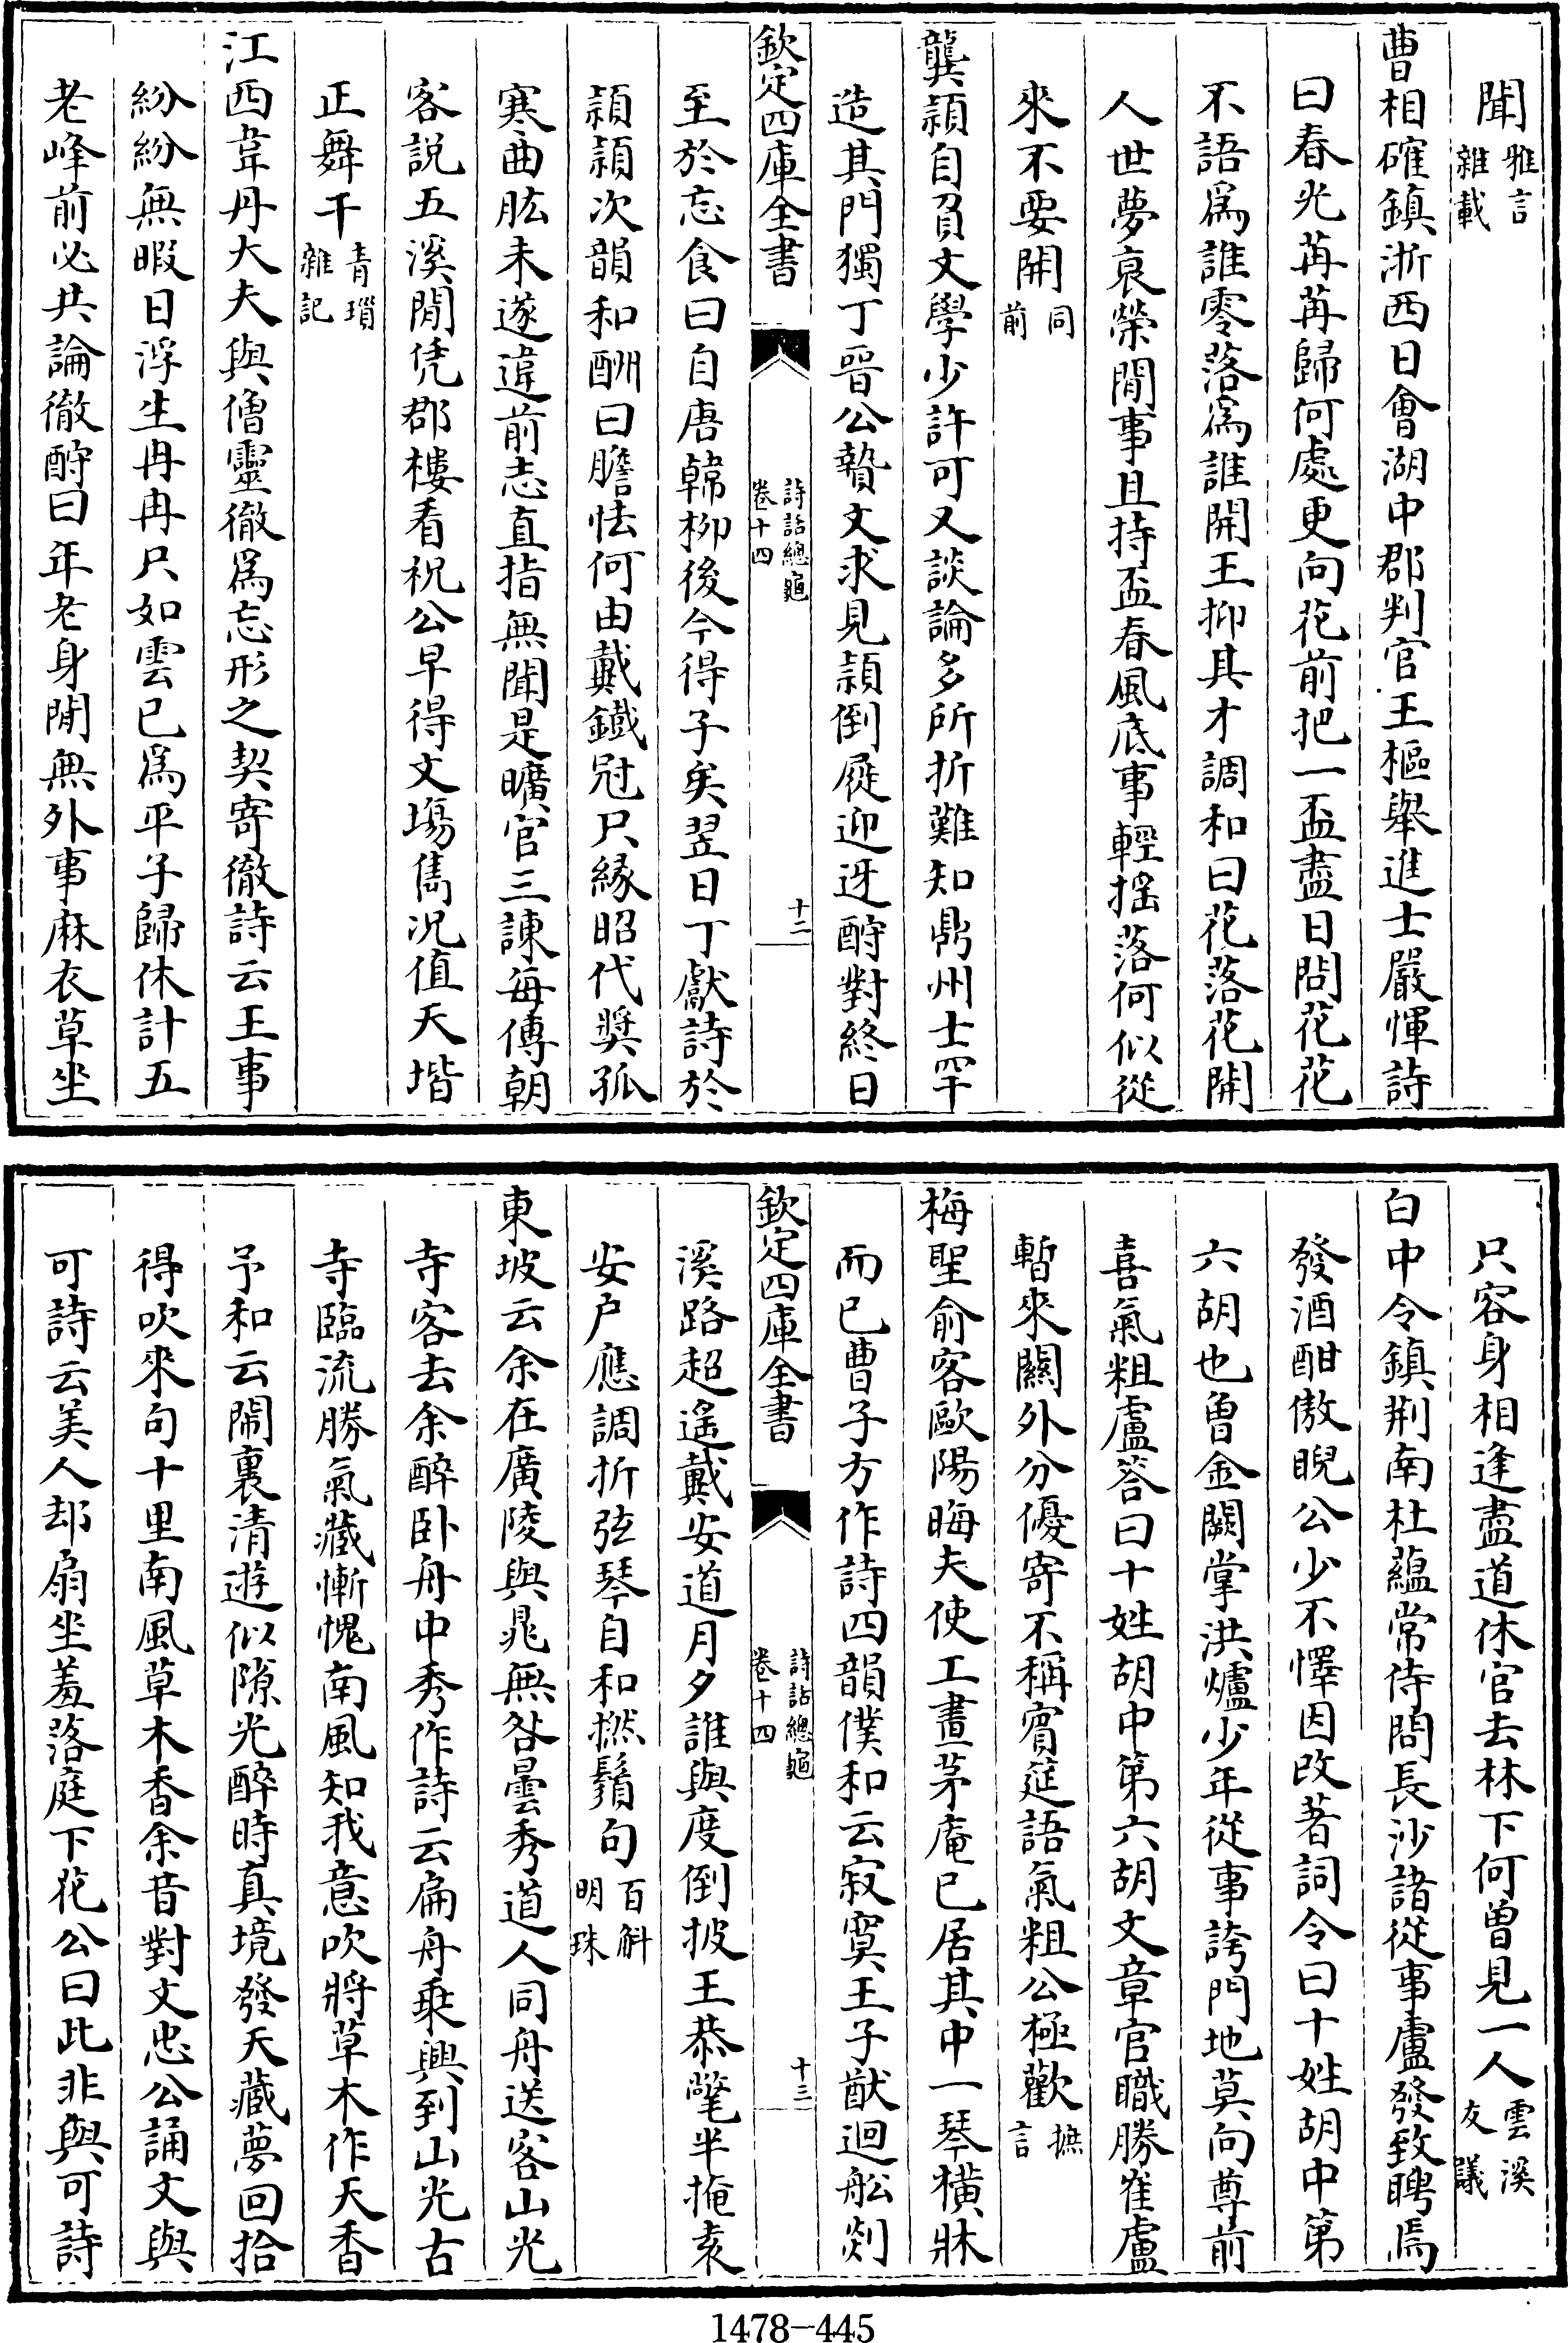 聞雅言雜載
曹相確鎮浙西日會湖中郡判官王樞舉進士嚴惲詩
曰春光苒苒歸何處更向花前把一盃盡日問花花
不語爲誰零落爲誰開王抑其才調和曰花落花開
人世夢哀榮閒事且持盃春風底事輕揺落何似從
來不要開同前
龔頴自負文學少許可又談論多所折難知鼎州士罕
造其門獨丁晉公贄文求見頴倒屣迎迓酧對終日
欽定四庫全書 詩話總龜卷十四 十二
至於忘食曰自唐韓栁後今得子矣翌日丁獻詩於
頴頴次韻和酬曰膽怯何由戴鐵冠只縁昭代奬孤
寒曲肱未遂違前志直指無聞是曠官三諫每傳朝
客説五溪閒凭郡樓看祝公早得文場雋况值天堦
正舞干青瑣雜記
江西韋丹大夫與僧靈徹爲忘形之契寄徹詩云王事
紛紛無暇日浮生冉冉只如雲已爲平子歸休計五
老峰前必共論徹酧曰年老身閒無外事麻衣草坐
只容身相逢盡道休官去林下何曽見一人雲溪友議
白中令鎮荆南杜藴常侍問長沙諸從事盧發致聘焉
發酒酣傲睨公少不懌因改著詞令曰十姓胡中第
六胡也曽金闕掌洪爐少年從事誇門地莫向尊前
喜氣粗盧答曰十姓胡中第六胡文章官職勝崔盧
暫來關外分優寄不稱賔筵語氣粗公極歡摭言
梅聖俞客歐陽晦夫使工畫茅庵已居其中一琴横牀
而已曹子方作詩四韻僕和云寂寞王子猷迴舩剡
欽定四庫全書 詩話總龜卷十四 十三
溪路超遥戴安道月夕誰與度倒披王恭氅半掩袁
安户應調折弦琴自和撚鬚句百斛明珠
東坡云余在廣陵與晁無咎曇秀道人同舟送客山光
寺客去余醉卧舟中秀作詩云扁舟乘興到山光古
寺臨流勝氣藏慚愧南風知我意吹將草木作天香
予和云閙裏清遊似隙光醉時真境發天藏夢回拾
得吹來句十里南風草木香余昔對文忠公誦文與
可詩云美人却扇坐羞落庭下花公曰此非與可詩
1478-445